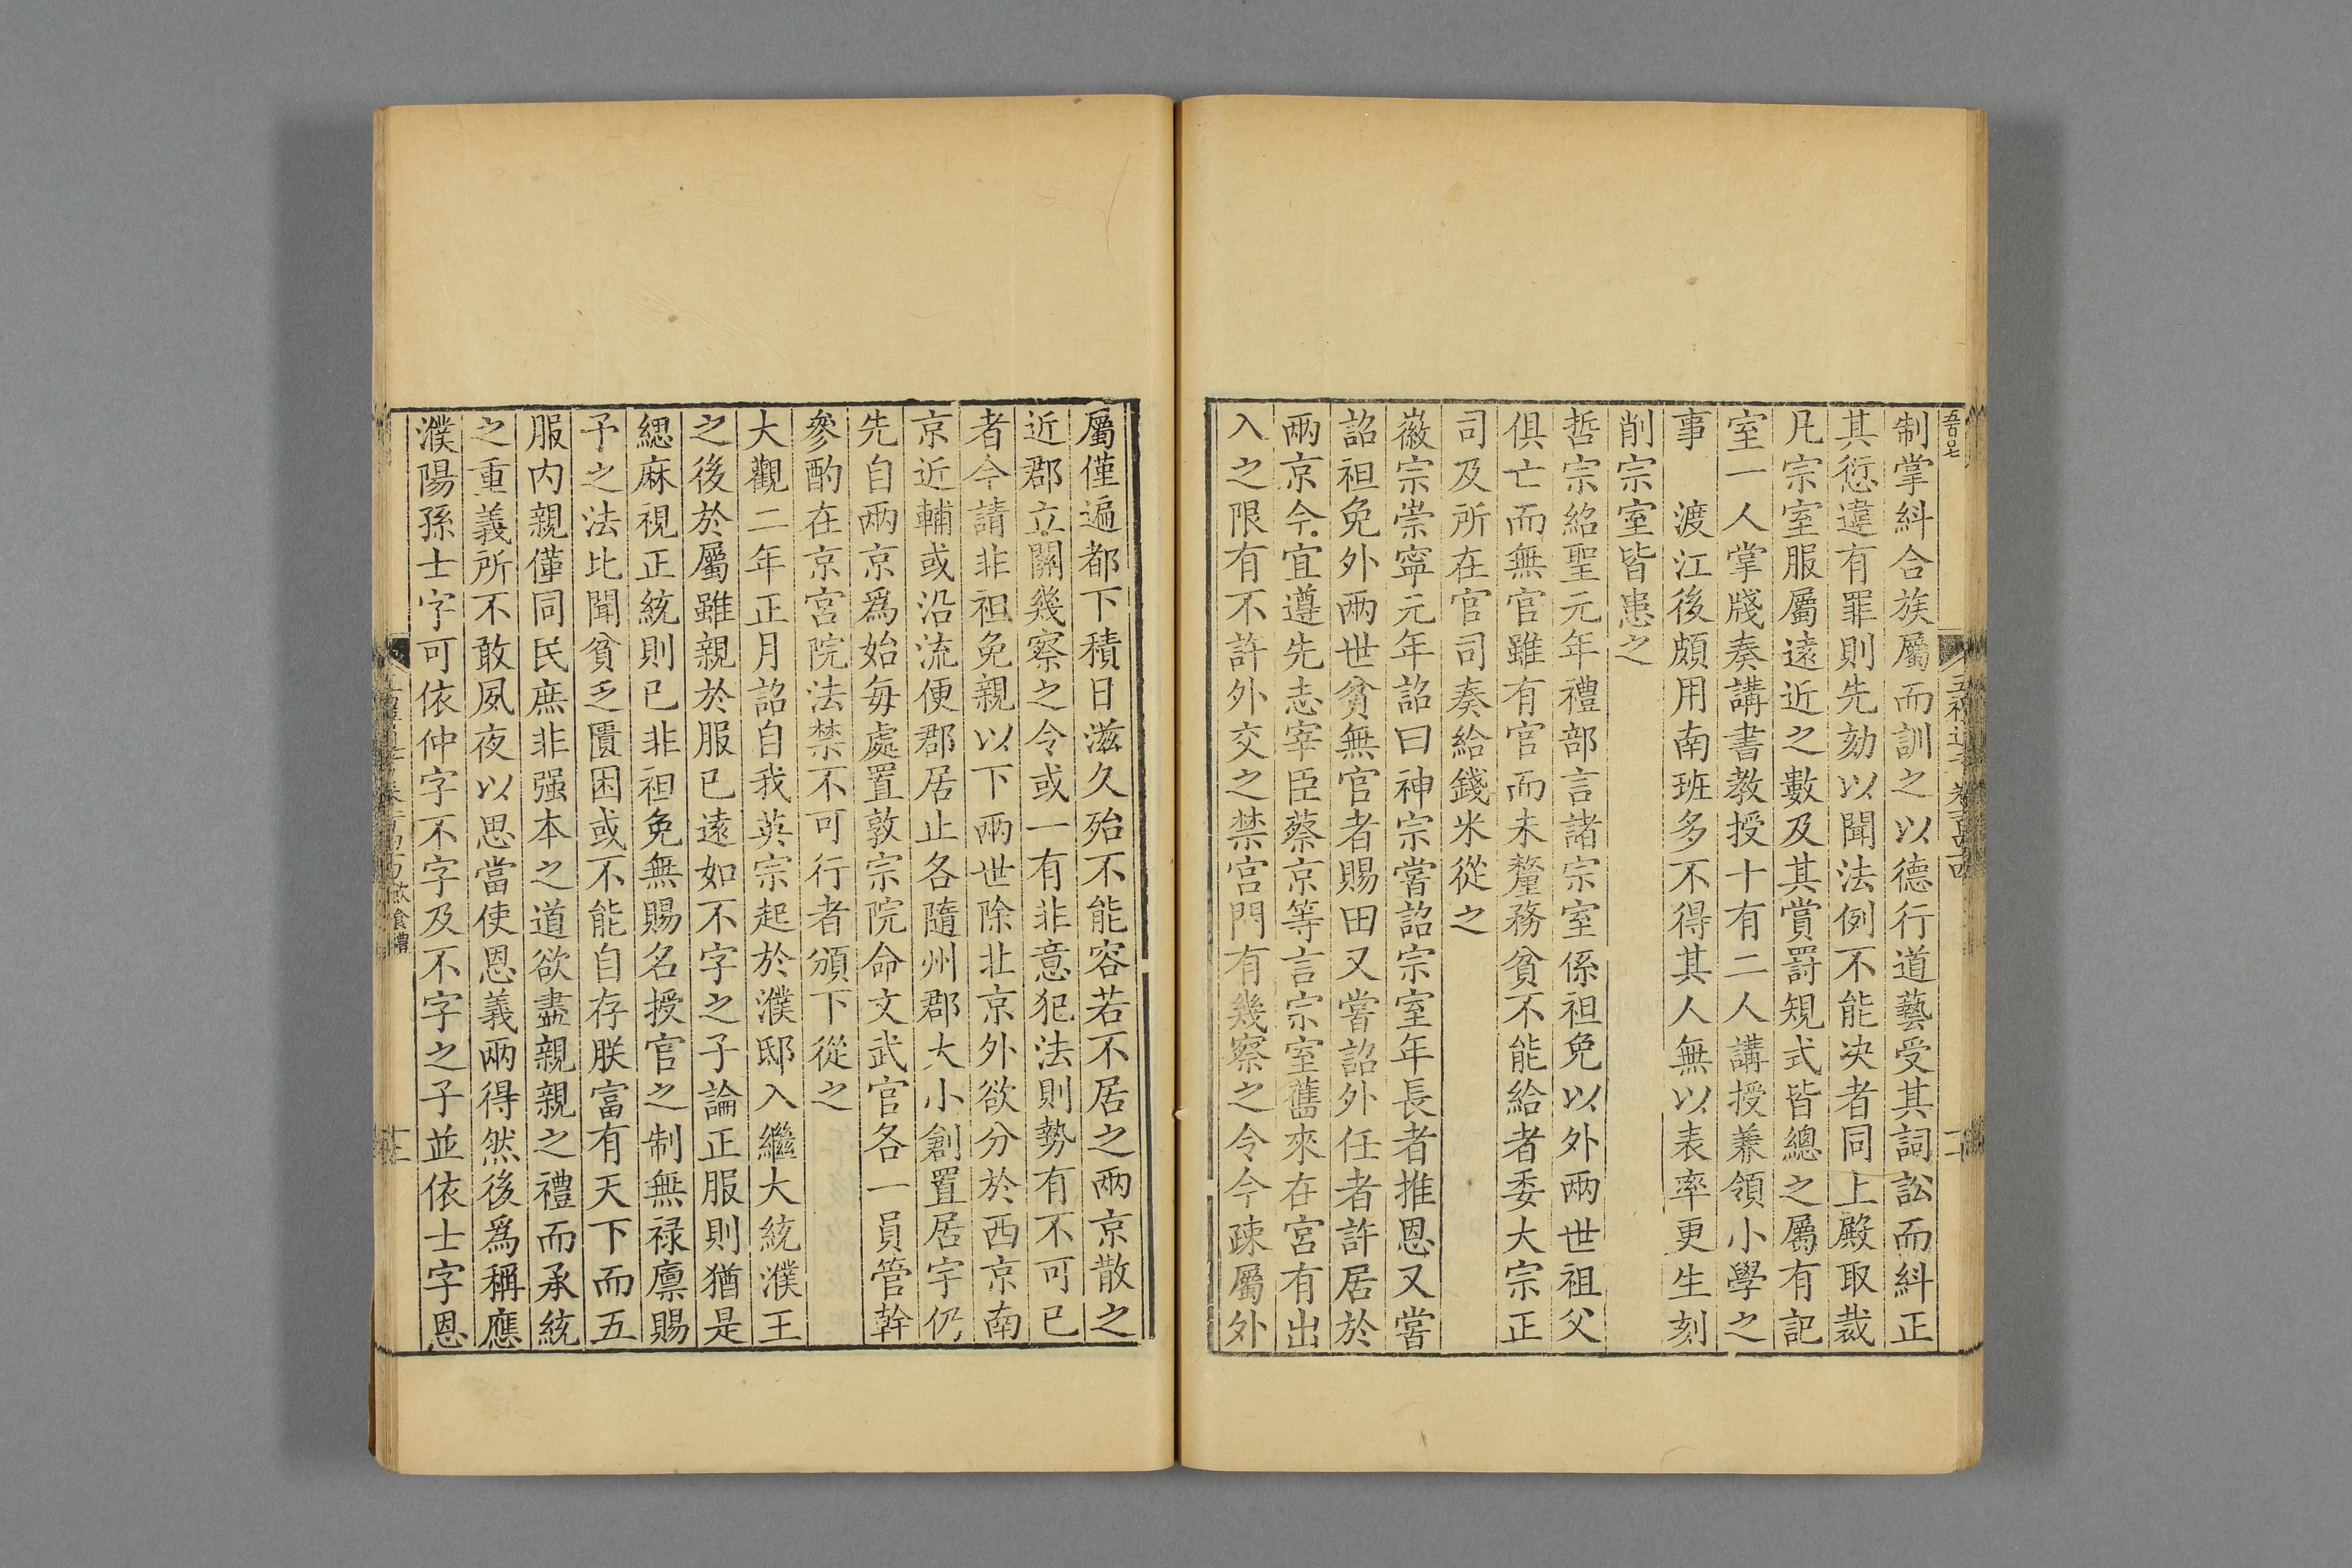 制掌糾合族屬而訓之以德行道藝受其詞訟而糾正
其愆違有罪則先劾以聞法例不能决者同上殿取裁
凡宗室服屬遠近之數及其賞罰規式皆總之屬有記
室一人掌牋奏講書教授十有二人講授兼領小學之
事　渡江後頗用南班多不得其人無以表率更生刻
削宗室皆患之
哲宗紹聖元年禮部言諸宗室係袒免以外兩世祖父
俱亡而無官雖有官而未釐務貧不能給者委大宗正
司及所在官司奏給錢米從之
徽宗崇寧元年詔曰神宗嘗詔宗室年長者推恩又嘗
詔袒免外兩世貧無官者賜田又嘗詔外任者許居於
兩京今宜遵先志宰臣蔡京等言宗室舊來在宮有出
入之限有不許外交之禁宮門有幾察之令今疎屬外
屬僅遍都下積日滋久殆不能容若不居之兩京散之
近郡立關幾察之令或一有非意犯法則勢有不可已
者今請非袒免親以下兩世除北京外欲分於西京南
京近輔或沿流便郡居止各隨州郡大小創置居宇仍
先自兩京爲始每處置敦宗院命文武官各一員管幹
參酌在京宮院法禁不可行者頒下從之
大觀二年正月詔自我英宗起於濮邸入繼大統濮王
之後於屬雖親於服已遠如不字之子論正服則猶是
緦麻視正統則已非袒免無賜名授官之制無禄廪賜
予之法比聞貧乏匱困或不能自存朕富有天下而五
服内親僅同民庶非强本之道欲盡親親之禮而承統
之重義所不敢夙夜以思當使恩義兩得然後爲稱應
濮陽孫士字可依仲字不字及不字之子並依士字恩
飲食禮